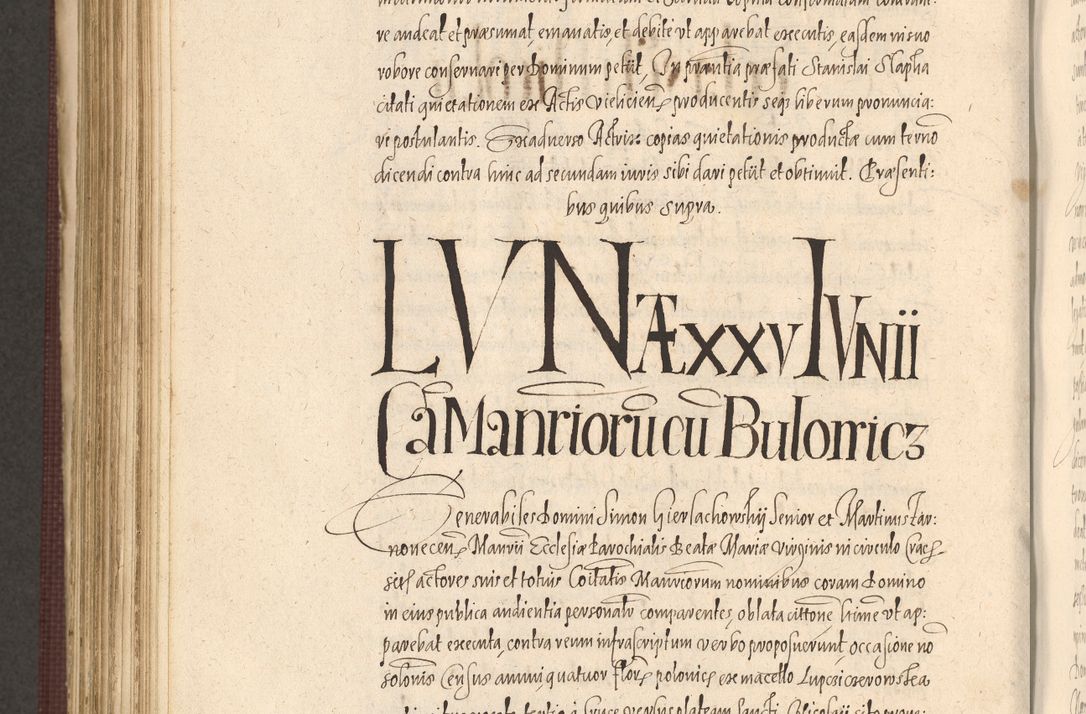 re audeat et præsumat, emanatis, et debite vt apparebat executis, easdem in suo
robore conservari per Dominum petiit, In præsentia præfati Stanislai Slapka
citati quietationem ex Actis Vieliciens producentis seqs liberum pronuncia:
ri postulantis. Ex adverso Actrix copias quietationis productæ cum termō
dicendi contra hinc ad secundam iuris sibi dari petiit et obtinuit. Præsenti:
bus quibus supra.
LVNÆ XXV IVNII
Cā Manriorū cū Bulowicz
Venerabiles Domini Simon Gierlachowskij Senior et Martinus Tar:
novecen Manrii Ecclesiæ Parochialis Beatæ Mariæ Virginis in circulo Crac
actores suis et totius Coītatis Manriorum nominibus coram Domino
in eius publica audientia personalr comparentes, oblata cittone hinc vt ap:
parebat executa, contra reum infrascriptum verbo proposuerunt, occasione nō
solōnis Census annui quatuor flor polonic ex macello Lupcziczerowskea